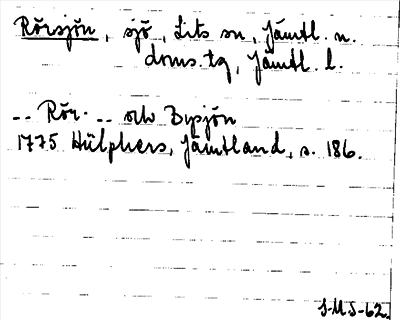 Rörsjön, sjö, Lits sn, Jämtl. n.
doms.tg, Jämtl. l.
-- Rör- -- och Bysjön
1775 Hülphers, Jämtland, s. 186.
S-M S-62.